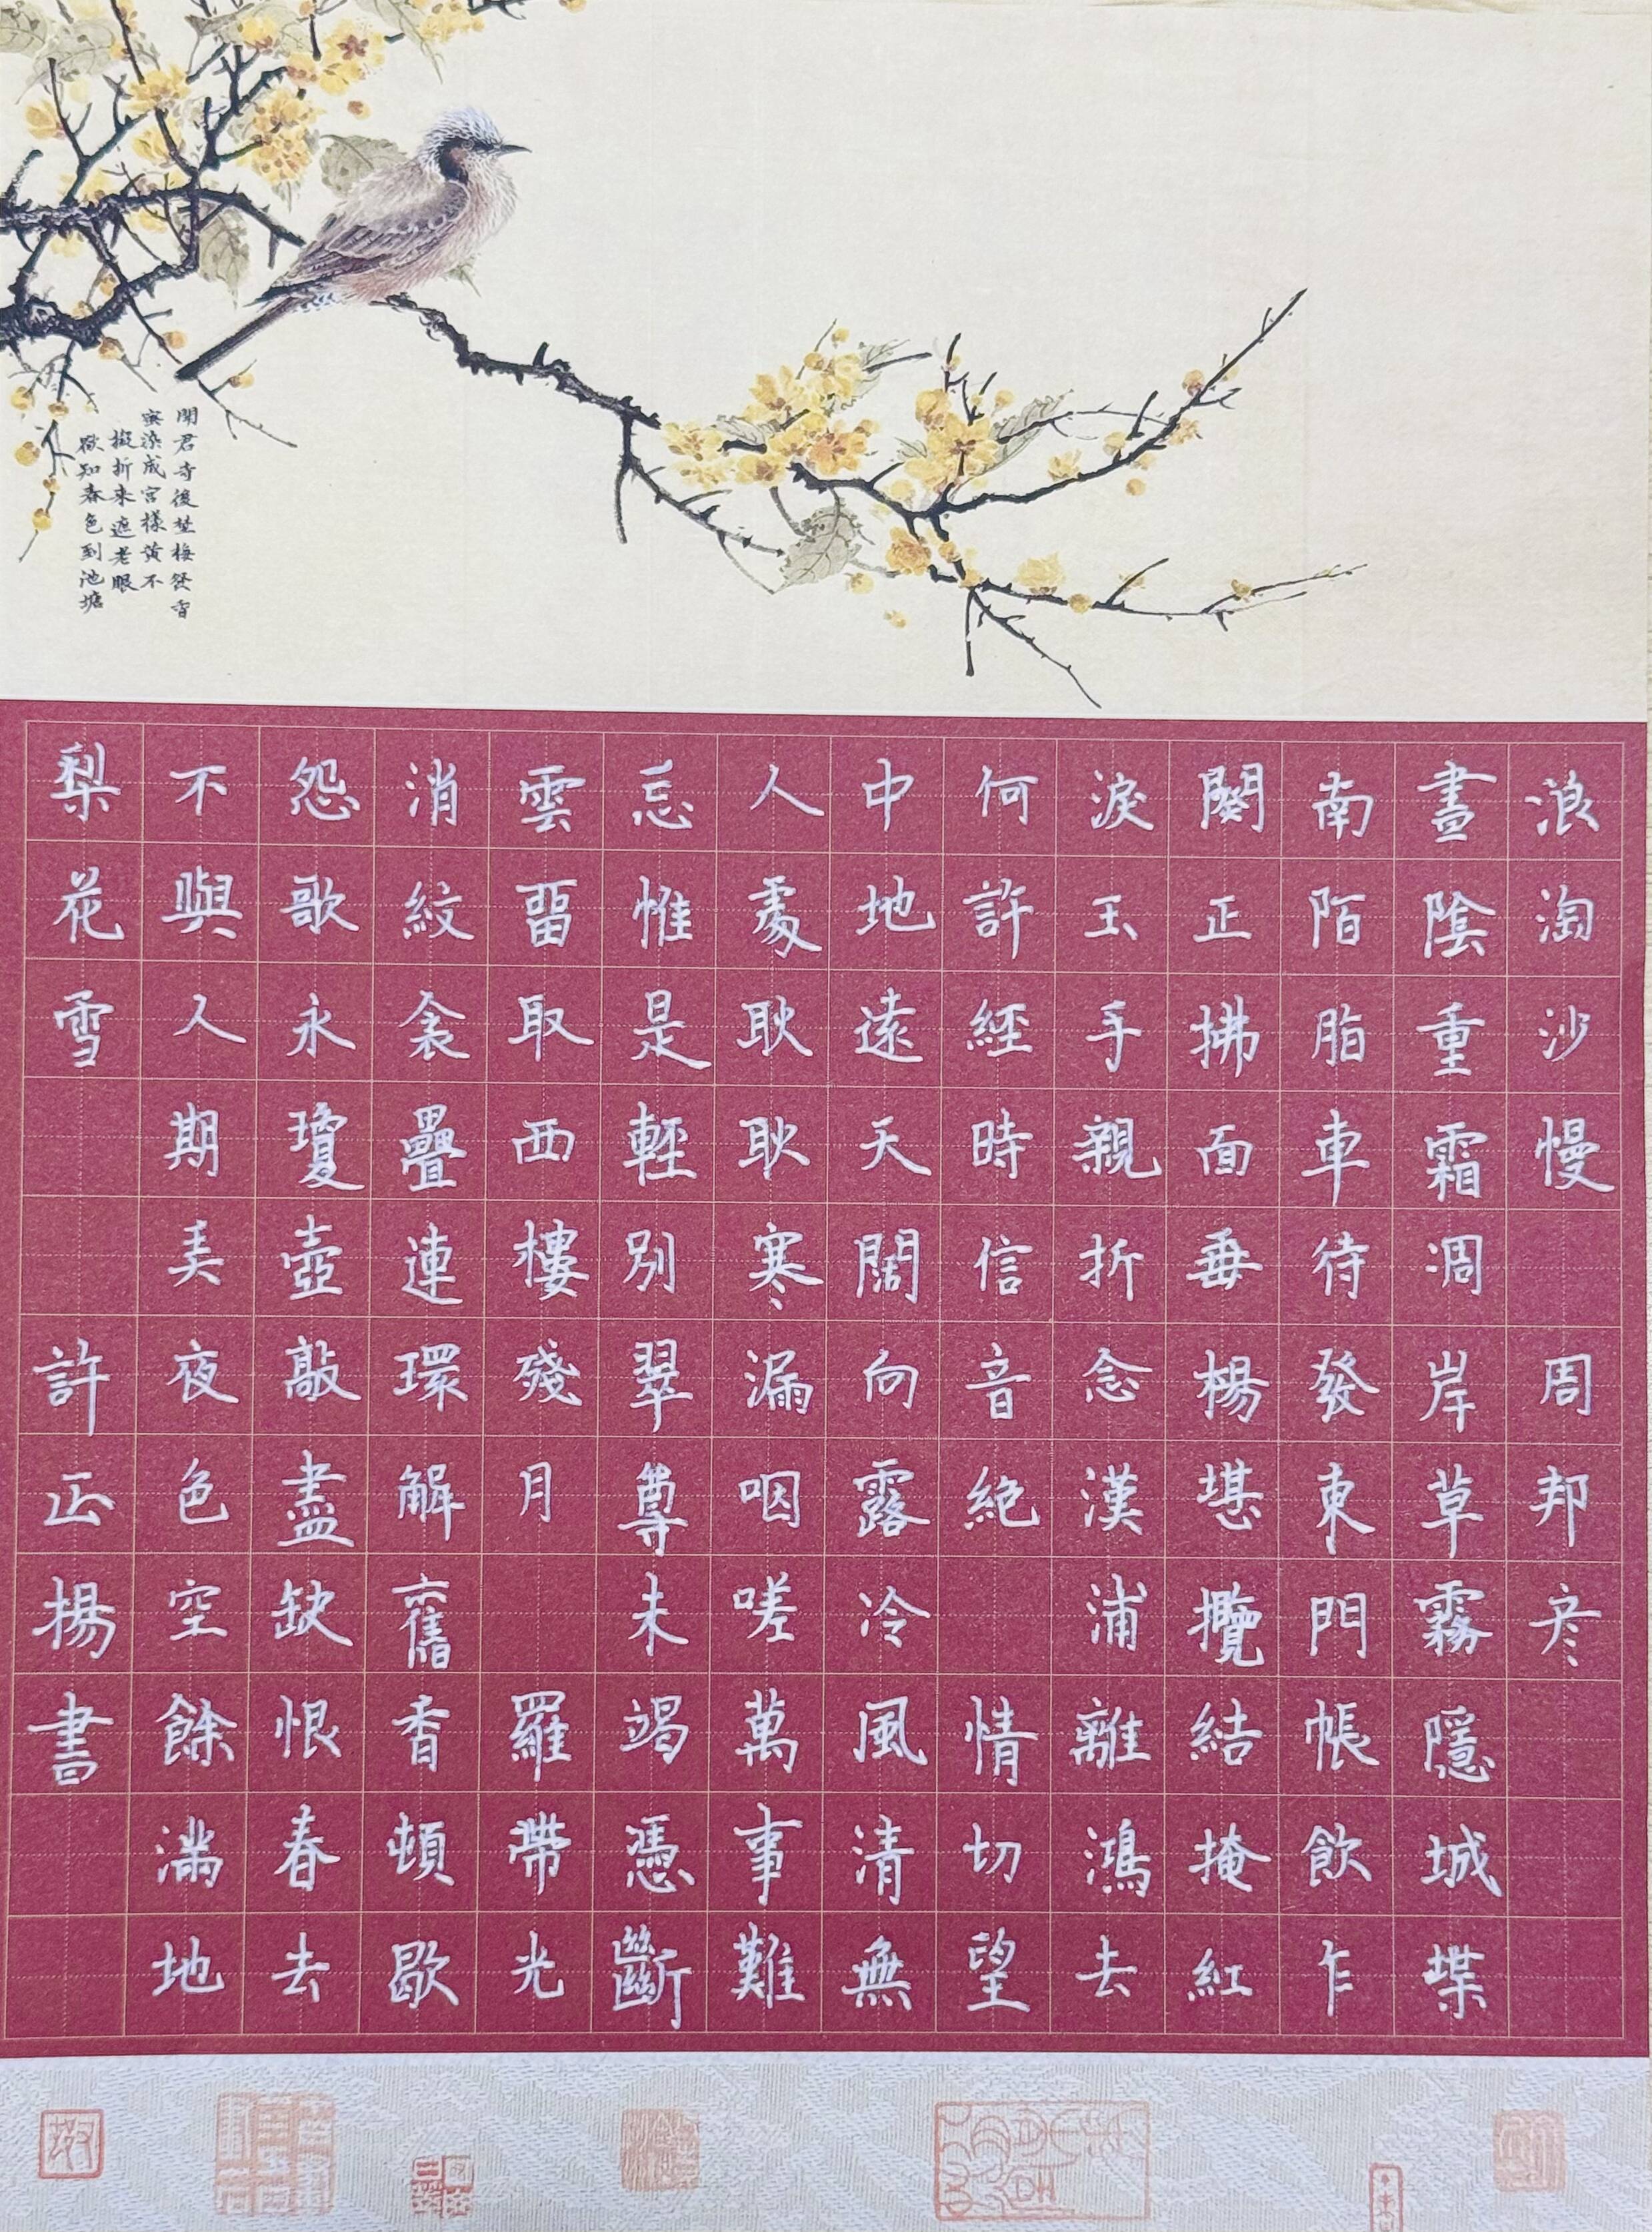 聞君寺後埜梅發香
蜜染成宮樣黃不
擬折來遮老眼
欲知春色到池塘
浪淘沙慢 周邦彦
晝陰重霜凋岸草霧隱城堞
南陌脂車待發東門帳飲乍
闋正拂面垂楊堪攬結掩紅
淚玉手親折念漢浦離鴻去
何許經時信音絕 情切望
中地遠天闊向露冷風清無
人處耿耿寒漏咽嗟萬事難
忘惟是輕別翠尊未竭憑斷
雲畱取西樓殘月 羅帶光
消紋衾疊連環解舊香頓歇
怨歌永瓊壺敲盡缺恨春去
不與人期弄夜色空餘滿地
梨花雪 許正揚書